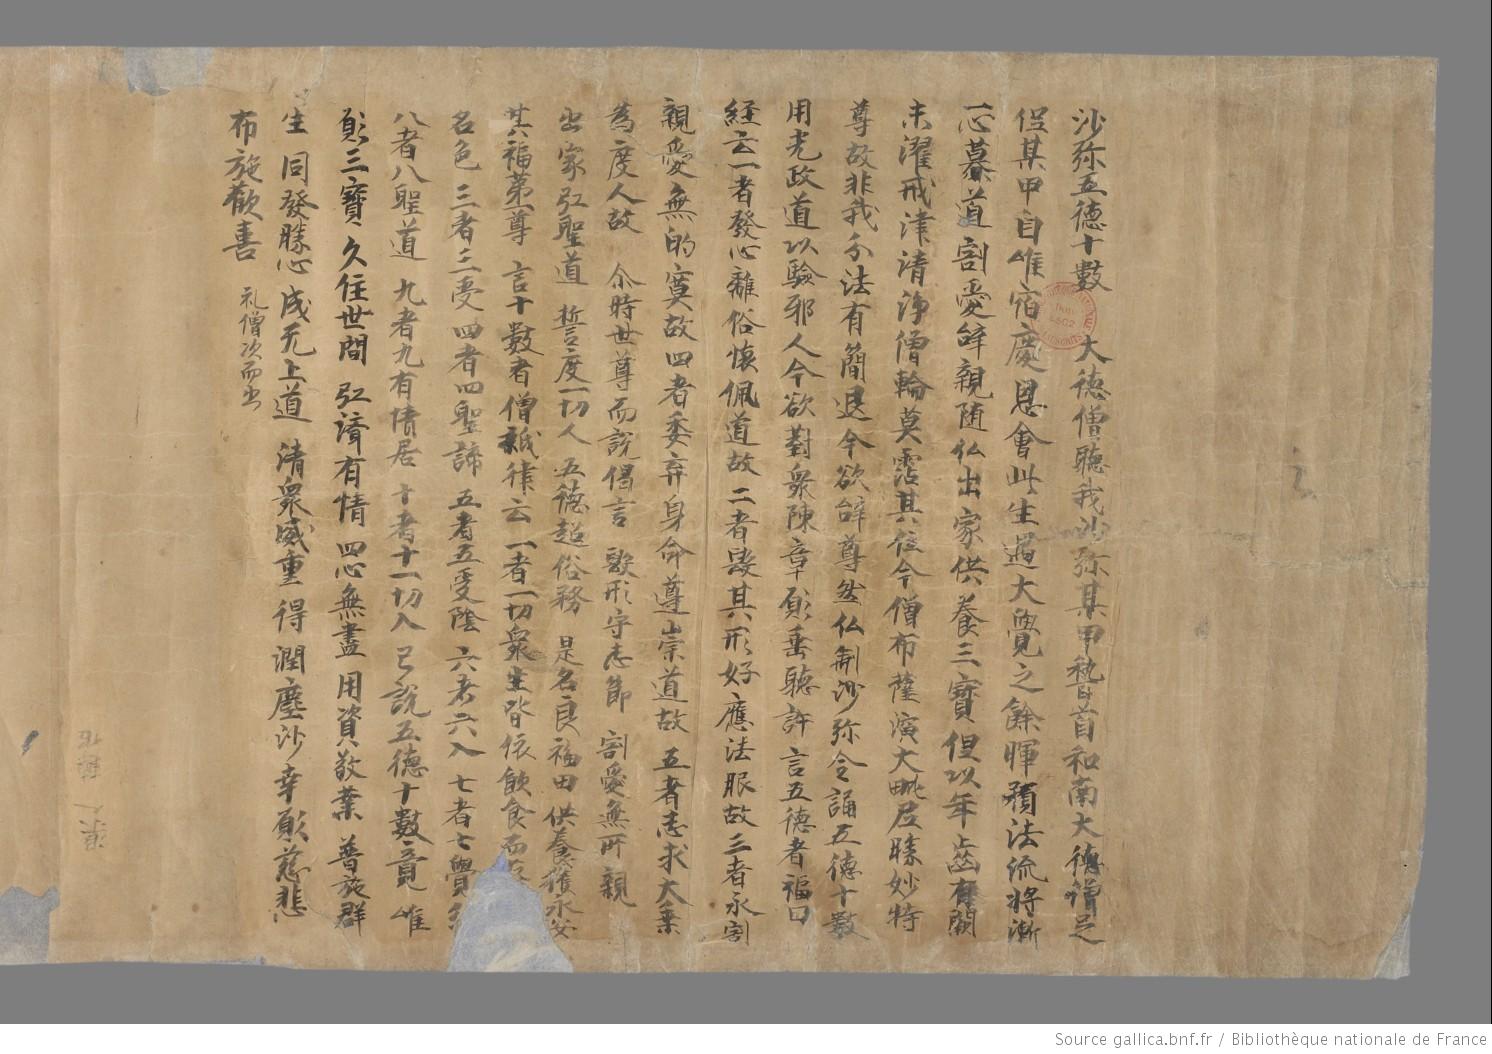 沙弥五德十數 大德僧聽我沙弥某甲𥡴首和南大德僧足
但某甲自惟宿慶恩會此生遇大覺之餘暉預法流將漸
一心慕道割愛辞親随仏出家供養三寳但以年歯有闕
未濯戒津清浄僧輪莫霑其位今僧布薩演大毗尼勝妙特
尊故非我分法有簡退今欲辞尊然仏制沙弥令誦五德十數
用光政道以驗邪人今欲對衆陳章願垂聽許 言五德者福田
経云一者發心離俗懷佩道故 二者毀其形好應法服故三者永割
親愛無的寞故四者委弃身命尊崇道故 五者志求大乗
為度人故 尒時世尊而說偈言 毀形守志節 割愛無所親
出家弘聖道 誓度一切人 五德超俗務 是名良福田 供養獲永安
其福第一尊 言十數者僧祇律云 一者一切衆生皆依飲食而
名色 三者三受 四者四聖諦 五者五受陰 六者六入 七者七覺
八者八聖道 九者九有情居 十者十一切入 已說五德十數竟 惟
願三寶久住世間 弘済有情 四心無盡 用資敬業 普施群
生 同發勝心 成无上道 清衆威重 得潤塵沙 幸願慈悲
布施歡喜 礼僧次而出
Source gallica.bnf.fr / Bibliothèque nationale de France